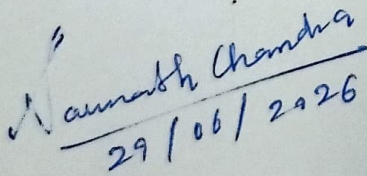 Naunath Chandra
29/06/2026